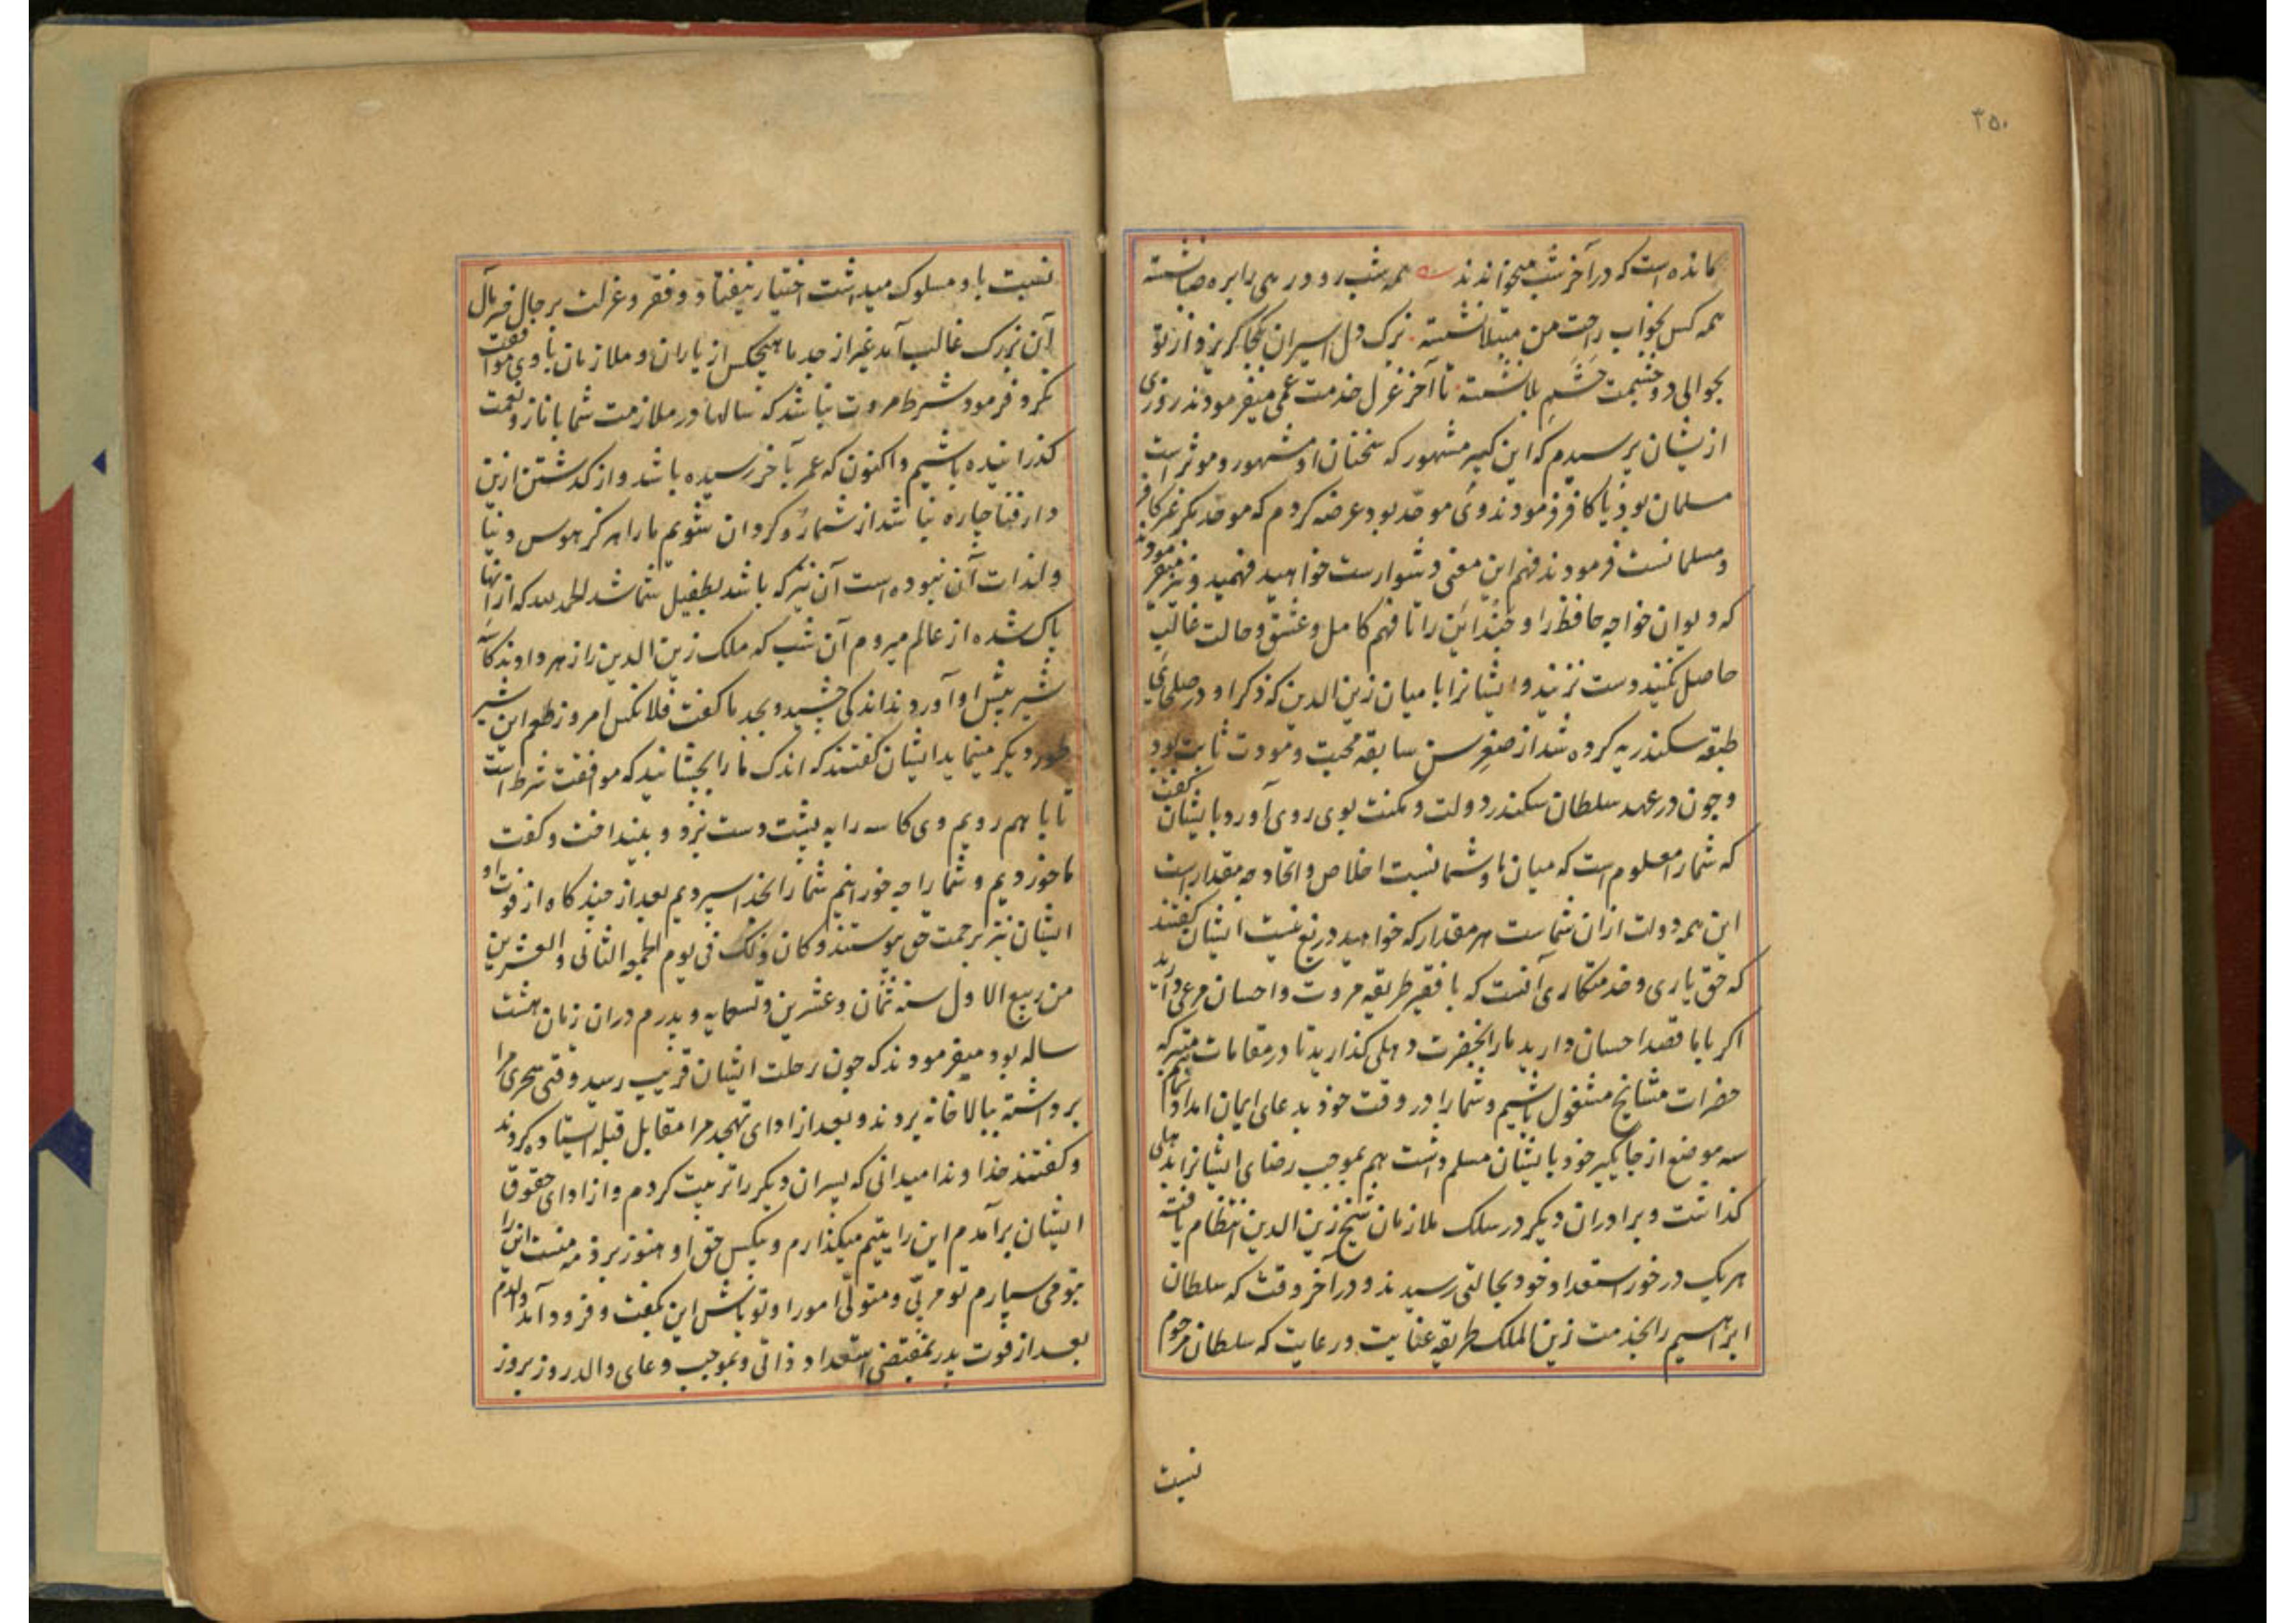 ۳۵۰
مانده است که در آخر شب میخواندند همه شب رود رهی را بره صبا نشسته
همه کس بخواب راحت من مبتلا نشسته ترک دل اسیران بکجا گریزد از تو
بحوالی دو چشمت حشم بلا نشسته تا آخر غزل خدمت عمی میفرمودند روزی
ازیشان پرسیدم که این کبیر مشهور که سخنان او مشهور و موثر است
مسلمان بود یا کافر فرمودند وی موحد بود عرضه کردم که موحد مگر غیر کافر
و مسلمانست فرمودند فهم این معنی دشوارست خواهید فهمید و نیز میفرمودند
که دیوان خواجه حافظ را و چندائن را تا فهم کامل و عشق و حالت غالب
حاصل نکنید دست نزنید و ایشانرا با میان زین الدین که ذکر او در صلحای
طبقه سکندریه کرده شد از صغر سن سابقه محبت و مودت ثابت بود
و چون در عهد سلطان سکندر دولت و مکنت بوی روی آورد با یشان گفت
که شما را معلوم است که میان ما و شما نسبت اخلاص و اتحاد چه مقدار است
این همه دولت ازان شماست هر مقدار که خواهید دریغ نیست ایشان گفتند
که حق یاری و خدمتکاری آنست که با فقیر طریقه مروت و احسان مرعی دارید
اکر با ما قصد احسان دارید ما را بحضرت دهلی گذارید تا در مقامات متبرکه
حضرات مشایخ مشغول باشیم و شما را در وقت خود بدعای ایمان امداد نمائیم
سه موضع از جایگیر خود با یشان مسلم داشت هم بموجب رضای ایشانرا بدهلی
گذاشت و برادران دیگر در سلک ملازمان شیخ زین الدین انتظام یافته
هر یک در خور استعداد خود بحالتی رسیدند و در آخر وقت که سلطان
ابراهیم را بخدمت زین الملک طریقه عنایت و رعایت که سلطان مرحوم
نسبت
نسبت باو مسلوک میداشت اختیار نیفتاد و فقر و عزلت بر حال فرخ مآل
آن بزرک غالب آمد غیر از جد ما هیچکس از یاران و ملازمان با وی موافقت
نکرد فرمود شرط مروت نباشد که سالها در ملازمت شما با ناز و نعمت
گذرانیده باشیم و اکنون که عمر بآخر رسیده باشد و از گذشتن ازین
دار فنا چاره نباشد از شما رو گردان شویم ما را هرگز هوس دنیا
و لذات آن نبوده است آن نیز که باشد بطفیل شما شد الحمد لله که ازانها
پاک شده از عالم میروم آن شب که ملک زین الدین را زهر دادند کاسه
شیر پیش او آوردند اندکی چشید و بجد ما گفت فلانکس امروز طعم این شیر
طور دیگر مینماید ایشان گفتند که اندک ما را بچشانید که موافقت شرط است
تا با هم رویم وی کاسه را به پشت دست بزد و بینداخت و گفت
ما خوردیم و شما را چه خورانیم شما را بخدا سپردیم بعد از چند گاه از فوت او
ایشان نیز برحمت حق پیوستند و کان ذلک فی یوم الجمعه الثانی و العشرین
من ربیع الاول سنه ثمان و عشرین و تسعمایه و پدرم دران زمان هشت
ساله بود میفرمودند که چون رحلت ایشان قریب رسید وقتی سحری مرا
برداشته ببالا خانه بردند و بعد از ادای تهجد مرا مقابل قبله ایستاده کردند
و گفتند خداوندا میدانی که پسران دیگر را تربیت کردم و از ادای حقوق
ایشان برآمدم این را یتیم میگذارم و بیکس حق او هنوز بر ذمه منست این را
بتو می سپارم تو مربی و متولی امور او تو باش این بگفت و فرود آمد والدم
بعد از فوت پدر بمقتضی استعداد ذاتی و بموجب دعای والد روز بروز